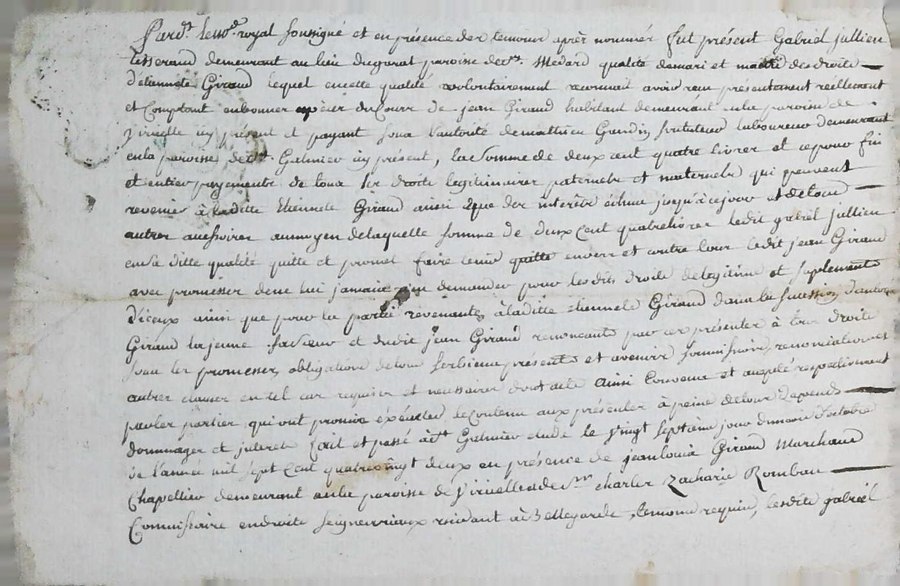 Pard.t le no.e royal soussigné et en présence des temoins après nommés fut présent Gabriel jullien
tisserand demeurant au lieu dugarat paroisse de st. Medard qualité de mari et maitre des droits
d'etiennete Giraud lequel en cette qualité volontairement reconnait avoir reçu présentement réellement
et Comptant en bonnes espèces du Cours de jean Giraud habitant demeurant en la paroisse de
Viricelle icy présent et payant sous l'autorité de mathieu Grandis son tuteur laboureur demeurant
en la paroisse de st. Galmier icy présent, la somme de deux cent quatre livres et ce pour fin
et entier payement de tous ses droits legitimaires paternels et maternels qui peuvent
revenir à laditte Etiennete Giraud ainsi que des interets échus jusqu'à ce jour et de tous
autres accessoires au moyen de laquelle somme de deux Cent quatre livres ledit gabriel jullien
en sa ditte qualité quitte et promet faire tenir quitte envers et contre tous ledit jean Giraud
avec promesses de ne lui jamais rien demander pour lesdits droits de legitime et suplements
d'iceux ainsi que pour la partie revenante à laditte etiennete Giraud dans la succession d'antoinette
Giraud la jeune sa sœur et dudit jean Giraud renoncant par ces présentes à tous droits
sous les promesses, obligations de tous ses biens présents et avenirs soumissions, renonciations et
autres clauses en tel cas requises et necessaires dont acte Ainsi Convenu et accepté respectivement
par les parties qui ont promis exécuter le contenu aux présentes à peine de tous depends
dommages et interets fait et passé à st Galmier etude le vingt septieme jour du mois d'octobre
de l'année mil sept Cent quatre vingt deux en présence de jean louis Giraud Marchand
Chapellier demeurant en la paroisse de Viricelle et de sr. charles Zacharie Rombau
Commissaire en droits seigneuriaux résidant à Bellegarde, temoins requis, lesdits gabriel